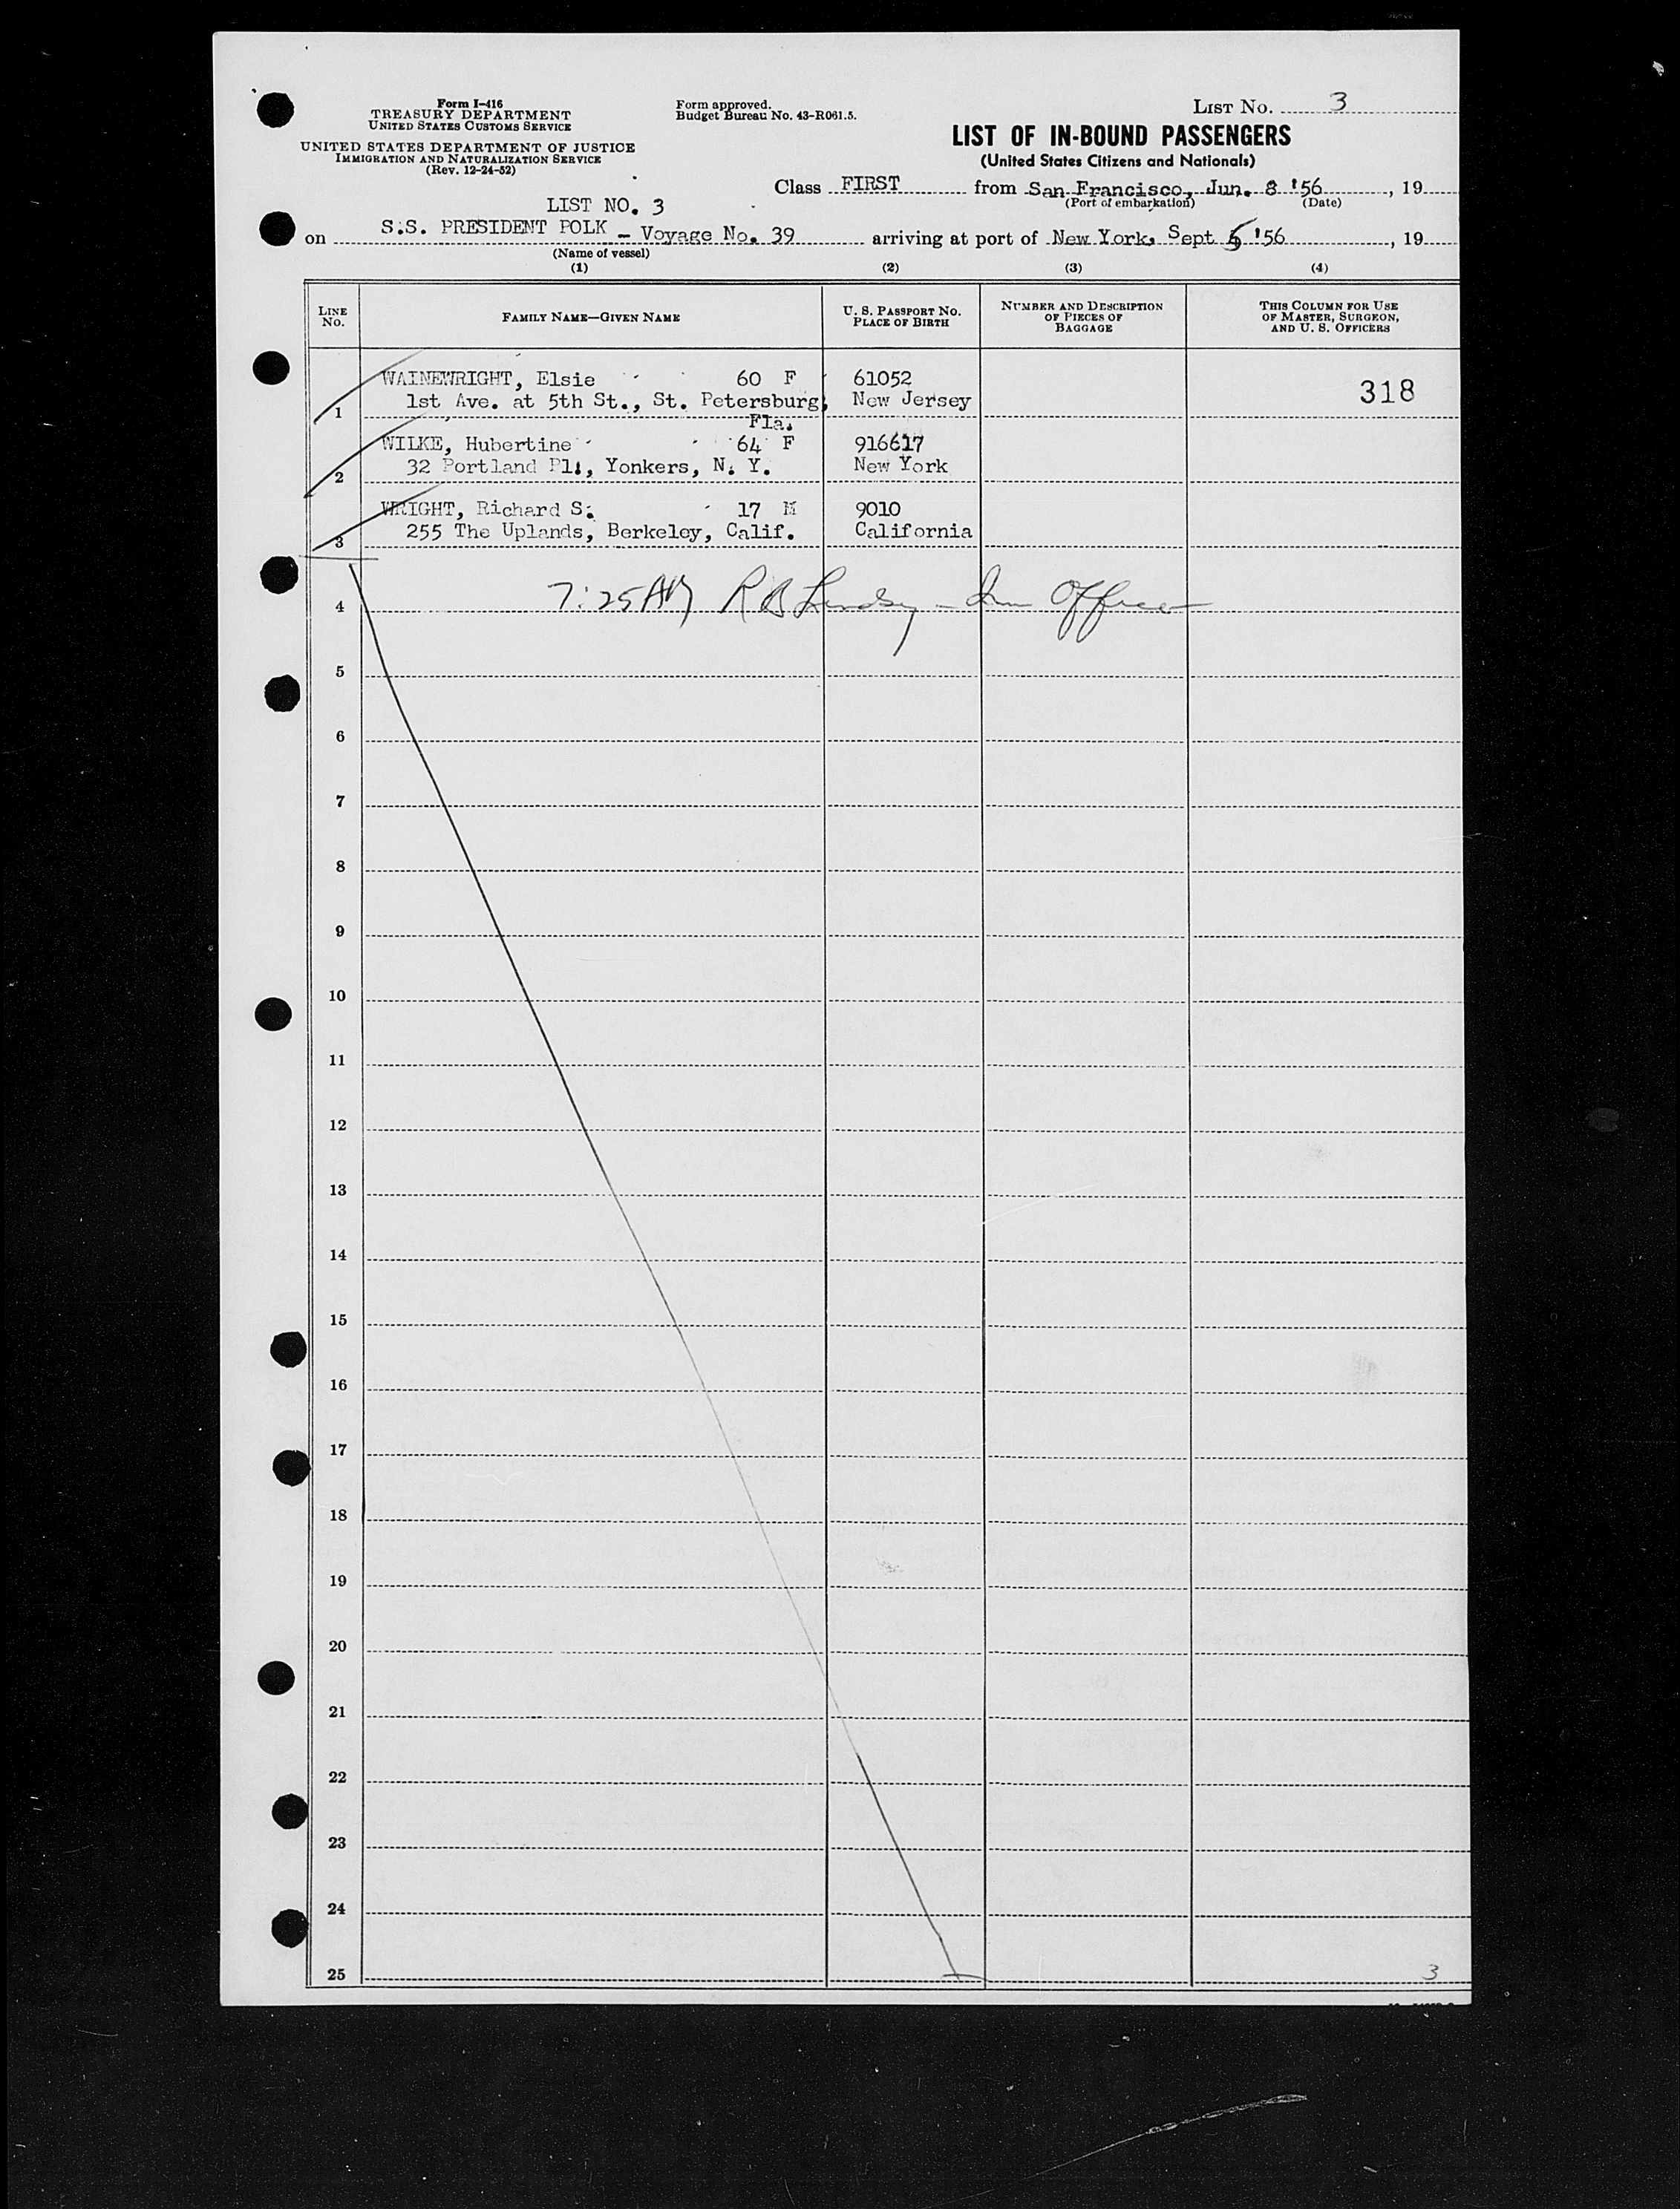 Form I-416
TREASURY DEPARTMENT
UNITED STATES CUSTOMS SERVICE
UNITED STATES DEPARTMENT OF JUSTICE
IMMIGRATION AND NATURALIZATION SERVICE
(Rev. 12-24-52)
Form approved.
Budget Bureau No. 43-R061.5.
LIST No. 3
LIST OF IN-BOUND PASSENGERS
(United States Citizens and Nationals)
Class FIRST from San Francisco, Jun. 8 '56, 19
(Port of embarkation) (Date)
LIST NO. 3
on S.S. PRESIDENT POLK - Voyage No. 39 arriving at port of New York, Sept '56, 19
(Name of vessel)
(1) (2) (3) (4)
LINE No. FAMILY NAME—GIVEN NAME U. S. PASSPORT NO. PLACE OF BIRTH NUMBER AND DESCRIPTION OF PIECES OF BAGGAGE THIS COLUMN FOR USE OF MASTER, SURGEON, AND U. S. OFFICERS
WAINEWRIGHT, Elsie 60 F 61052 318
1 1st Ave. at 5th St., St. Petersburg, New Jersey
Fla.
WILKE, Hubertine 64 F 916617
2 32 Portland Pl., Yonkers, N. Y. New York
WRIGHT, Richard S. 17 M 9010
3 255 The Uplands, Berkeley, Calif. California
4 7:25 AM R B Lindsy - Imm Officer
5
6
7
8
9
10
11
12
13
14
15
16
17
18
19
20
21
22
23
24
25 3